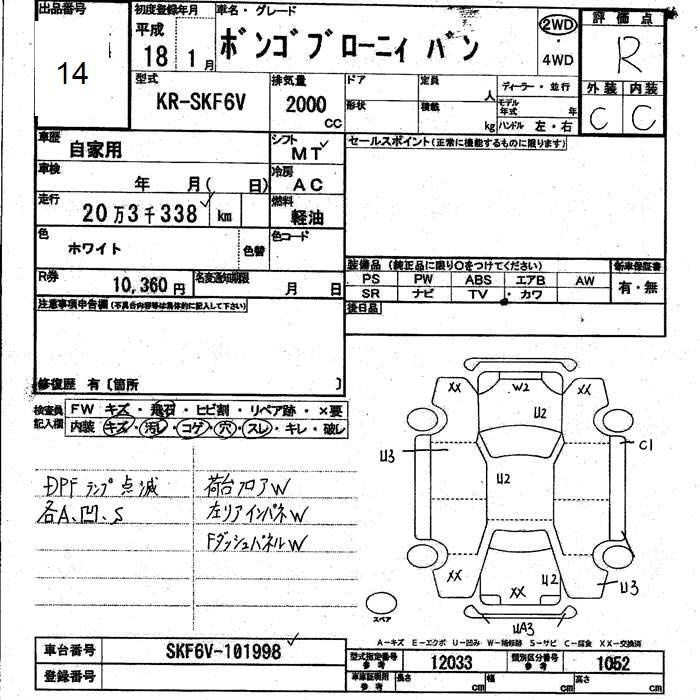 出品番号 初度登録年月 車名・グレード 2WD 評価点
14 平成 18年 1月 ボンゴブローニィ バン ・ 4WD R
型式 排気量 ドア 定員 人 ディーラー・並行 外装 内装
KR-SKF6V 2000 CC 形状 積載 kg モデル年式 年 ハンドル 左・右 C C
車歴 自家用 シフト MT セールスポイント(正常に機能するものに限ります)
車検 年 月( 日) 冷房 AC
走行 20万3千338 km 燃料 軽油
色 ホワイト 色替 色コード
R券 10,360円 名変通知期限 月 日 装備品(純正品に限り○をつけてください) 新車保証書
PS PW ABS エアB AW 有・無
SR ナビ TV ・カワ
注意事項申告欄(不具合内容等は具体的に記入して下さい) 後日品
修復歴 有〔箇所 〕
検査員記入欄 FW キズ・飛石・ヒビ割・リペア跡・×要
内装 キズ・汚レ・コゲ・穴・スレ・キレ・破レ
DPFランプ点滅 荷台フロアW
各A、凹、S 左リアインパネW
FダッシュパネルW
XX W2 XX
U2
U3 C1
U2
XX XX U2 U3
UA3
スペア
A-キズ E-エクボ U-凹み W-補修跡 S-サビ C-腐食 XX-交換済
車台番号 SKF6V-101998 型式指定番号 参考 12033 類別区分番号 参考 1052
登録番号 車庫証明用 参考 長さ cm 幅 cm 高さ cm